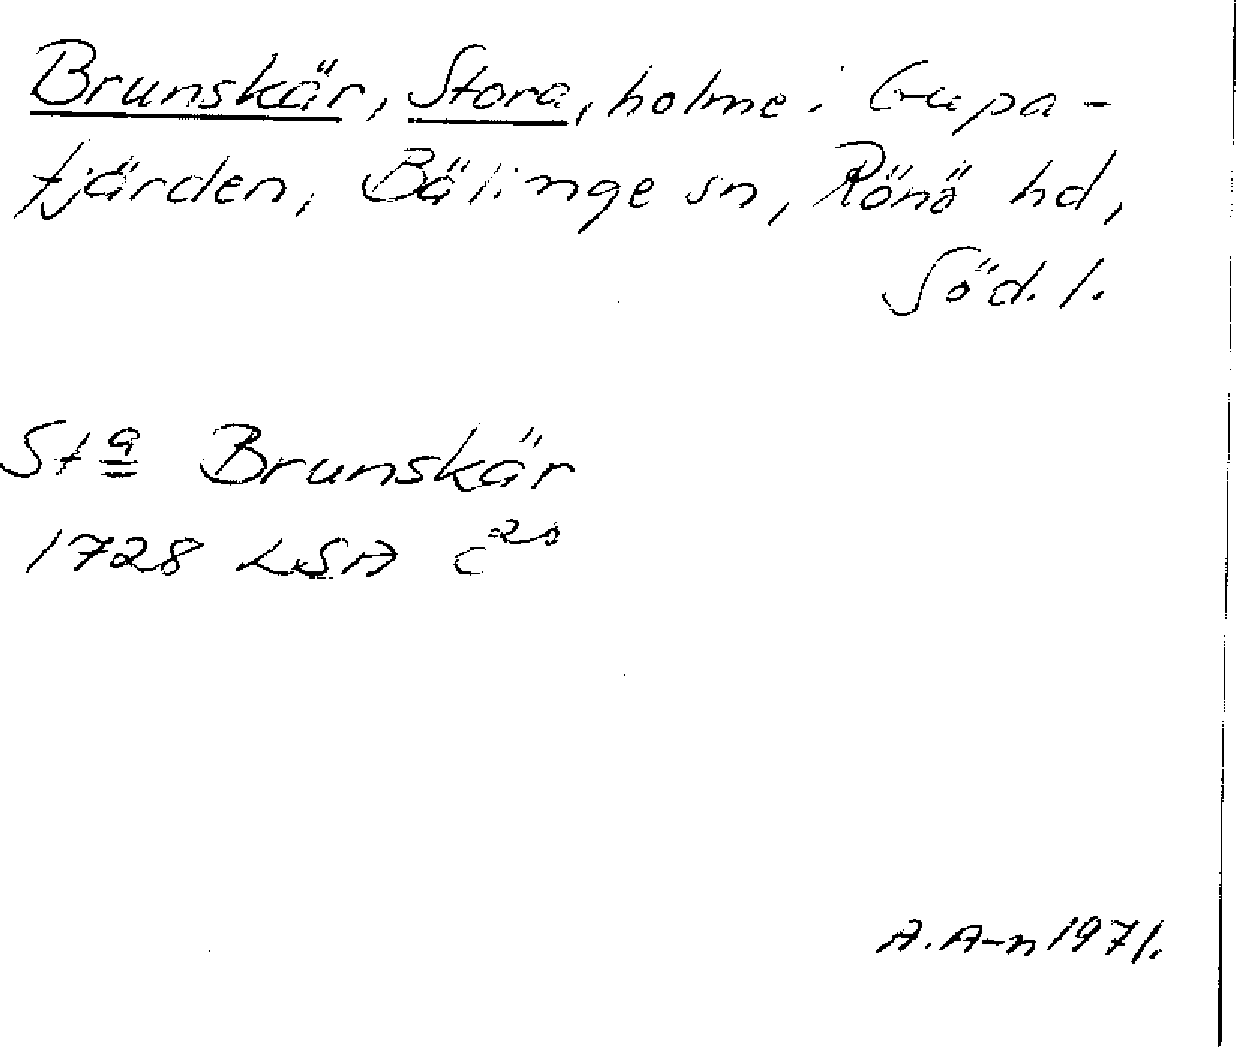 Brunskär, Stora, holme i Gupa-
fjärden, Bälinge sn, Rönö hd,
Söd. l.
St<sup>a</sup> Brunskär
1728 LSA C<sup>20</sup>
A. A-n 1971.